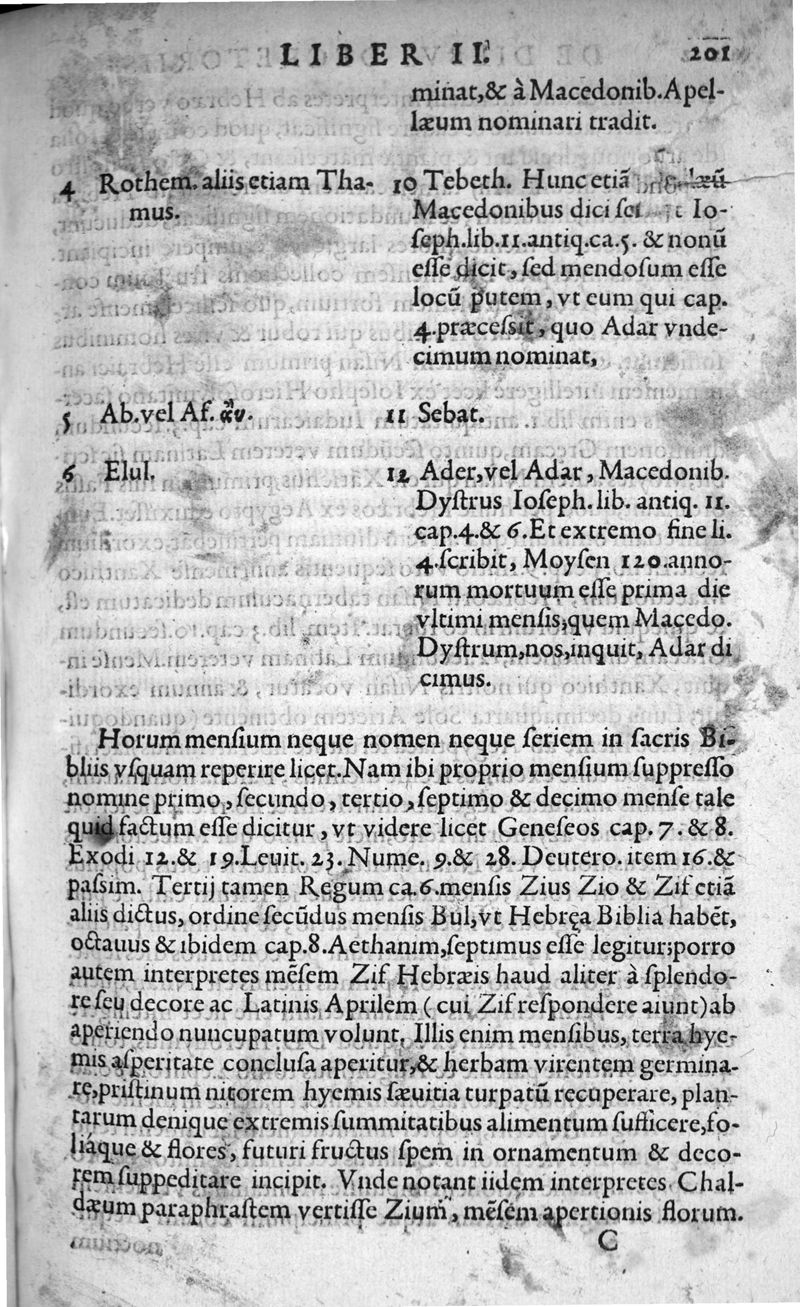 LIBER II.
201
minat,& à Macedonib.Apel-
læum nominari tradit.
4 Rothem. aliis etiam Tha-
mus.
10 Tebeth. Hunc etiã
Macedonibus dici Io-
ſeph.lib.11.antiq.ca.5. & nonũ
eſſe dicit, ſed mendoſum eſſe
locũ putem, vt eum qui cap.
4.præceſsit, quo Adar vnde-
cimum nominat,
5 Ab.vel Aſ. ἀν.
11 Sebat.
6 Elul.
12 Ader,vel Adar, Macedonib.
Dyſtrus Ioſeph. lib. antiq. 11.
cap.4.& 6.Et extremo fine li.
4.ſcribit, Moyſen 120.anno-
rum mortuum eſſe prima die
vltimi menſis,quem Macedo.
Dyſtrum,nos,inquit, Adar di
cimus.
Horum menſium neque nomen neque ſeriem in ſacris Bi-
bliis vſquam reperire licet.Nam ibi proprio menſium ſuppreſſo
nomine primo, ſecundo, tertio, ſeptimo & decimo menſe tale
quid factum eſſe dicitur, vt videre licet Geneſeos cap. 7. & 8.
Exodi 12.& 19.Leuit. 23. Nume. 9.& 28. Deutero. item 16.&
paſsim. Tertij tamen Regum ca.6.menſis Zius Zio & Zif etiã
aliis dictus, ordine ſecũdus menſis Bul,vt Hebręa Biblia habẽt,
octauus & ibidem cap.8.Aethanim,ſeptimus eſſe legitur;porro
autem interpretes mẽſem Zif Hebræis haud aliter à ſplendo-
re ſeu decore ac Latinis Aprilem (cui Zif reſpondere aiunt)ab
aperiendo nuncupatum volunt. Illis enim menſibus, terra hye-
mis aſperitate concluſa aperitur,& herbam virentem germina-
re,priſtinum nitorem hyemis ſæuitia turpatũ recuperare, plan-
tarum denique extremis ſummitatibus alimentum ſufficere,fo-
liáque & flores, futuri fructus ſpem in ornamentum & deco-
rem ſuppeditare incipit. Vnde notant iidem interpretes Chal-
dæum paraphraſtem vertiſſe Zium, mẽſem apertionis florum.
C